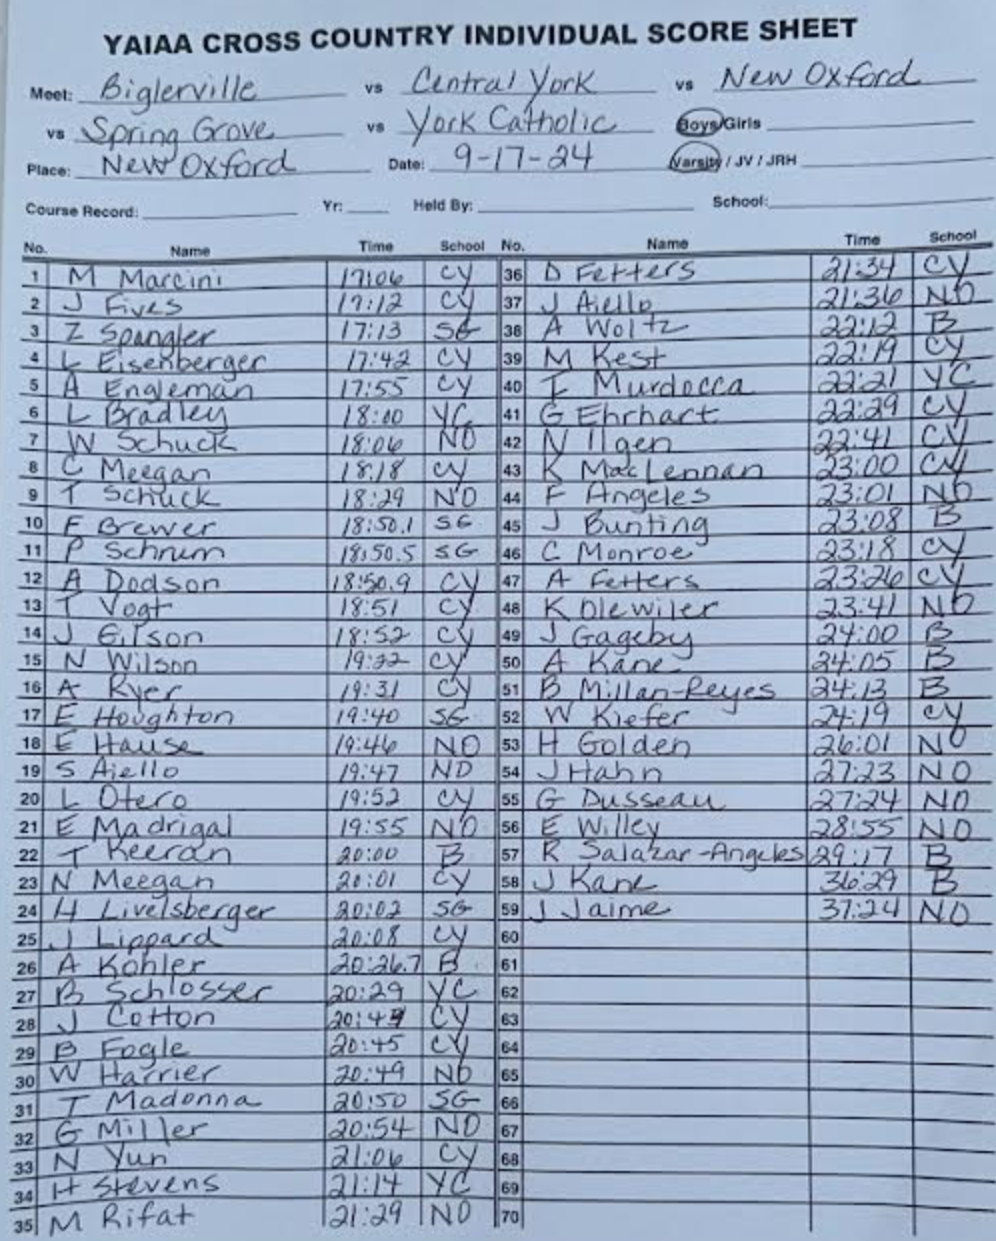 YAIAA CROSS COUNTRY INDIVIDUAL SCORE SHEET
Meet: Biglerville vs Central York vs New Oxford
vs Spring Grove vs York Catholic Boys/Girls
Place: New Oxford Date: 9-17-24 Varsity / JV / JRH
Course Record: Yr: Held By: School:
No. Name Time School No. Name Time School
1 M Marcini 17:06 CY 36 D Fetters 21:34 CY
2 J Fives 17:12 CY 37 J Aiello 21:36 NO
3 Z Spangler 17:13 SG 38 A Woltz 22:12 B
4 L Eisenberger 17:42 CY 39 M Kest 22:19 CY
5 A Engleman 17:55 CY 40 Murdocca 22:21 YC
6 L Bradley 18:00 YC 41 G Ehrhart 22:29 CY
7 W Schuck 18:06 NO 42 N Ilgen 22:41 CY
8 C Meegan 18:18 CY 43 K MacLennan 23:00 CY
9 T Schuck 18:29 NO 44 F Angeles 23:01 NO
10 F Brewer 18:50.1 SG 45 J Bunting 23:08 B
11 P Schrum 18:50.5 SG 46 C Monroe 23:18 CY
12 A Dodson 18:50.9 CY 47 A Fetters 23:26 CY
13 T Vogt 18:51 CY 48 K Olewiler 23:41 NO
14 J Eilson 18:52 CY 49 J Gageby 24:00 B
15 N Wilson CY 50 A Kane 24:05 B
16 A Kyer 19:31 CY 51 B Millan-Reyes 24:13 B
17 E Houghton 19:40 SG 52 W Kiefer 24:19 CY
18 E Hause 19:46 NO 53 H Golden 26:01 NO
19 S Aiello 19:47 NO 54 J Hahn 27:23 NO
20 L Otero 19:52 CY 55 G Dusseau 27:24 NO
21 E Madrigal 19:55 NO 56 E Willey 28:55 NO
22 T Keeran 20:00 B 57 R Salazar-Angeles 29:17 B
23 N Meegan 20:01 CY 58 J Kane 36:29 B
24 H Livelsberger 20:02 SG 59 J Jaime 37:24 NO
25 J Lippard 20:08 CY 60
26 A Kohler 20:26.7 B 61
27 B Schlosser 20:29 YC 62
28 J Cotton CY 63
29 B Fogle 20:45 CY 64
30 W Harrier 20:49 NO 65
31 T Madonna 20:50 SG 66
32 G Miller 20:54 NO 67
33 N Yun 21:06 CY 68
34 H Stevens 21:14 YC 69
35 M Rifat 21:29 NO 70